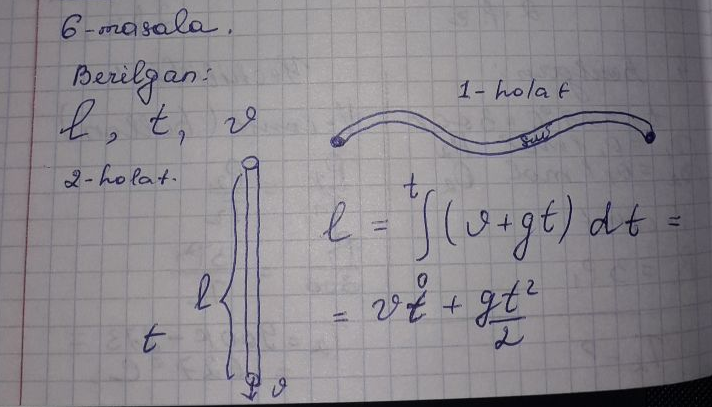 6-masala.
Berilgan:
l, t, v
1-holat
suv
2-holat.
l = ∫₀ᵗ (v + gt) dt =
= vt + gt²/2
l
t
v